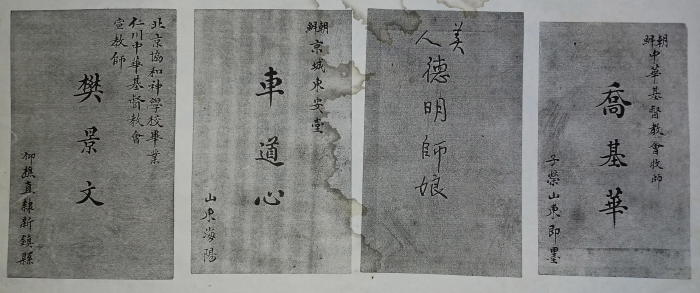 朝鮮中華基督教會牧師
喬基華
子榮山東即墨
美人
德明師娘
朝鮮京城東安堂
車道心
山東海陽
北京協和神學校畢業
仁川中華基督教會
宣教師
樊景文
仰樵直隸新鎮縣